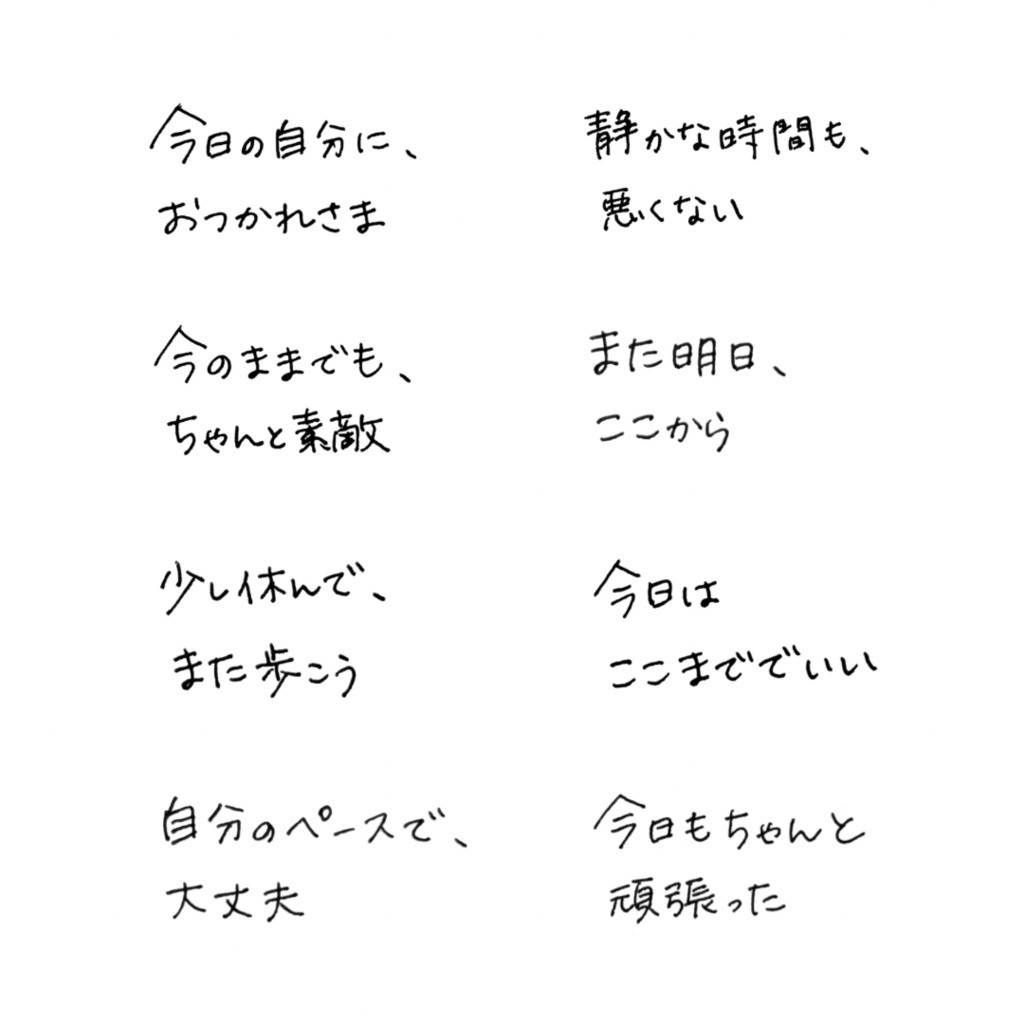 今日の自分に、
おつかれさま
静かな時間も、
悪くない
今のままでも、
ちゃんと素敵
また明日、
ここから
少し休んで、
また歩こう
今日は
ここまででいい
自分のペースで、
大丈夫
今日もちゃんと
頑張った